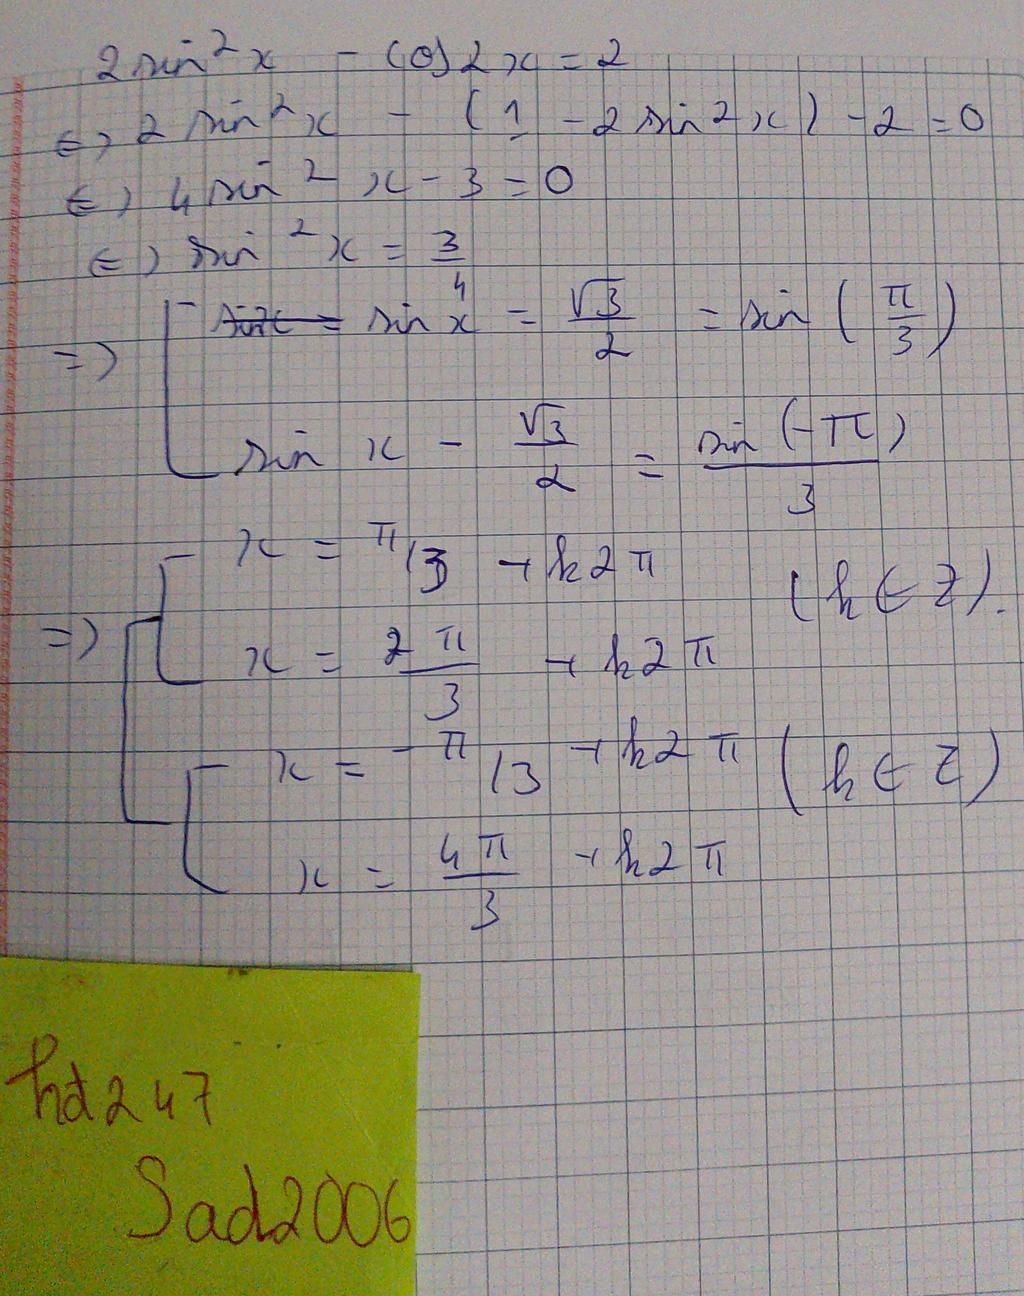 2 sin²x - cos2x = 2
<=> 2 sin²x - (1 - 2 sin²x) - 2 = 0
<=> 4 sin²x - 3 = 0
<=> sin²x = 3/4
=> [ sin x = √3/2 = sin (π/3)
sin x - √3/2 = sin (-π)/3
=> [ x = π/3 + k2π (k ∈ Z).
x = 2π/3 + k2π
x = -π/3 + k2π (k ∈ Z)
x = 4π/3 + k2π
hd247
Sad2006